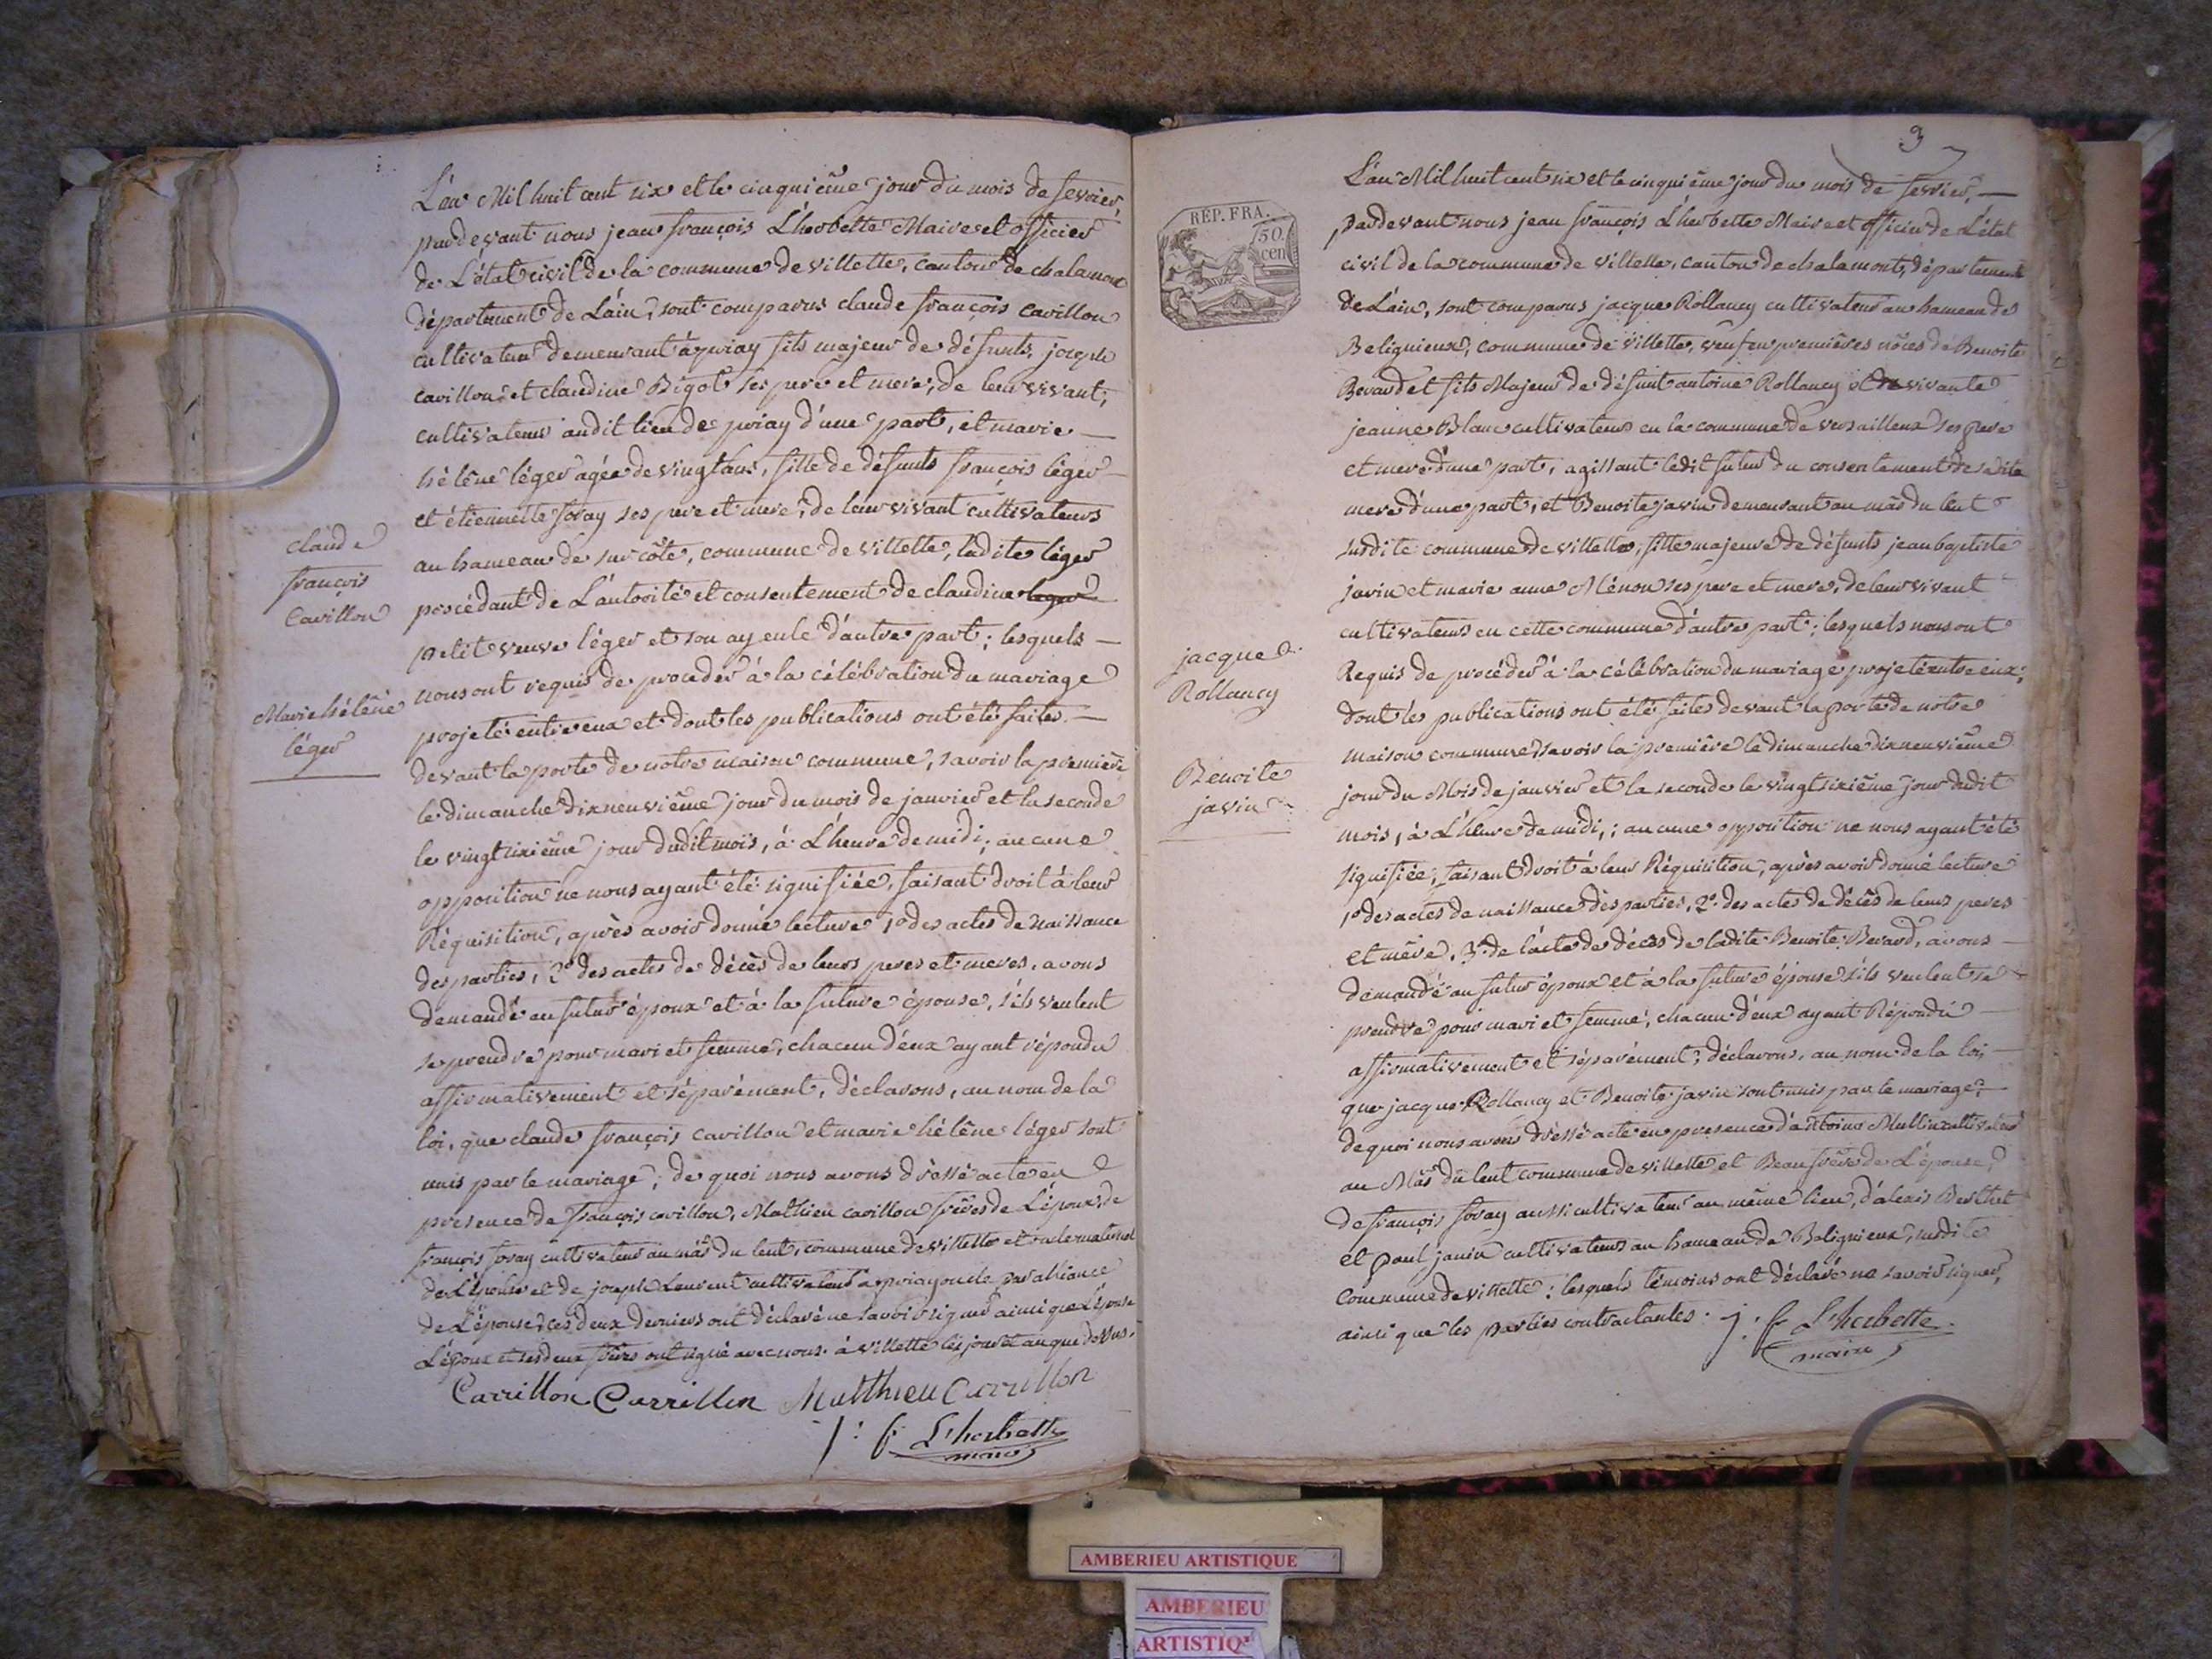 L'an Mil huit cent six et le cinquième jour du mois de fevrier,
pardevant nous jean françois L'herbette Maire et officier
de L'état civil de la commune de villette, canton de chalamont
département de L'ain, sont comparus claude françois Carrillon
cultivateur demeurant à priay fils majeur de défunts joseph
carrillon et claudine Bigot ses pere et mere, de leur vivant,
cultivateurs audit lieu de priay d'une part, et marie
hélène léger agée de vingt ans, fille de défunts françois léger
et étiennette foray ses pere et mere, de leur vivant cultivateurs
au hameau de sur côte, commune de villette, ladite léger
procédant de L'autorité et consentement de claudine leger
petit veuve léger et son ayeule d'autre part ; lesquels
nous ont requis de proceder à la célébration du mariage
projeté entre eux et dont les publications ont été faites
devant la porte de notre maison commune, savoir la première
le dimanche dixneuvième jour du mois de janvier et la seconde
le vingtsixième jour dudit mois, à L'heure de midi ; aucune
opposition ne nous ayant été signifiée, faisant droit à leur
Réquisition, après avoir donné lecture 1° des actes de naissance
des parties, 2° des actes de décès de leurs peres et meres, avons
demandé au futur époux et à la future épouse, s'ils veulent
se prendre pour mari et femme, chacun d'eux ayant répondu
affirmativement et séparément, déclarons, au nom de la
loi, que claude françois carrillon et marie hélène léger sont
unis par le mariage ; de quoi nous avons dressé acte en
presence de françois carrillon, Mathieu carrillon frères de L'époux, de
françois foray cultivateur au mâs du lent, commune de villette oncle maternel
de L'épouse et de joseph Laurent cultivateur à priay oncle par alliance
de L'épouse, ces deux derniers ont déclaré ne savoir signer ainsi que L'épouse
L'époux et ses deux frères ont signé avec nous. à villette les jour et an que dessus.
Carrillon Carrillon Matthieu Carrillon
j. f. L'herbette
maire
claude
françois
Carrillon
Marie hélène
léger
3
RÉP. FRA.
50.
cen
L'an Mil huit cent six et le cinquième jour du mois de fevrier,
pardevant nous jean françois L'herbette Maire et officier de L'état
civil de la commune de villette, canton de chalamont, département
de L'ain, sont comparus jacque Rollancy cultivateur au hameau de
Beligneux, commune de villette, veuf en premières nôces de Benoite
Bevard et fils Majeur de défunt antoine Rollancy et de vivante
jeanne Blanc cultivateurs en la commune de versailleux ses pere
et mere d'une part, agissant ledit futur du consentement de sadite
mere d'une part, et Benoite javin demeurant au mâs du lent
susdite commune de villette, fille majeure de défunts jean baptiste
javin et marie anne Ménon ses pere et mere, de leur vivant
cultivateurs en cette commune d'autre part ; lesquels nous ont
Requis de procéder à la célébration du mariage projeté entre eux ;
dont les publications ont été faites devant la porte de notre
maison commune, savoir la première le dimanche dixneuvième
jour du Mois de janvier et la seconde le vingtsixième jour dudit
mois, à L'heure de midi ; aucune opposition ne nous ayant été
signifiée, faisant droit à leur Réquisition, après avoir donné lecture
1° des actes de naissance des parties, 2° des actes de décès de leurs peres
et mère, 3° de L'acte de décès de ladite Benoite Bevard, avons
demandé au futur époux et à la future épouse s'ils veulent se
prendre pour mari et femme, chacun d'eux ayant Répondu
affirmativement et séparément ; déclarons, au nom de la loi,
que jacque Rollancy et Benoite javin sont unis par le mariage ;
de quoi nous avons dressé acte en presence d'antoine Mullin cultivateur
au Mâs du lent commune de villette et Beau frère de L'épouse,
de françois foray aussi cultivateur au même lieu, d'alexis Berthet
et paul janin cultivateurs au hameau de Beligneux, susdite
Commune de villette ; lesquels témoins ont déclaré ne savoir signer,
ainsi que les parties contractantes. j. f. L'herbette
maire
jacque
Rollancy
Benoite
javin
AMBERIEU ARTISTIQUE
AMBERIEU
ARTISTIQ